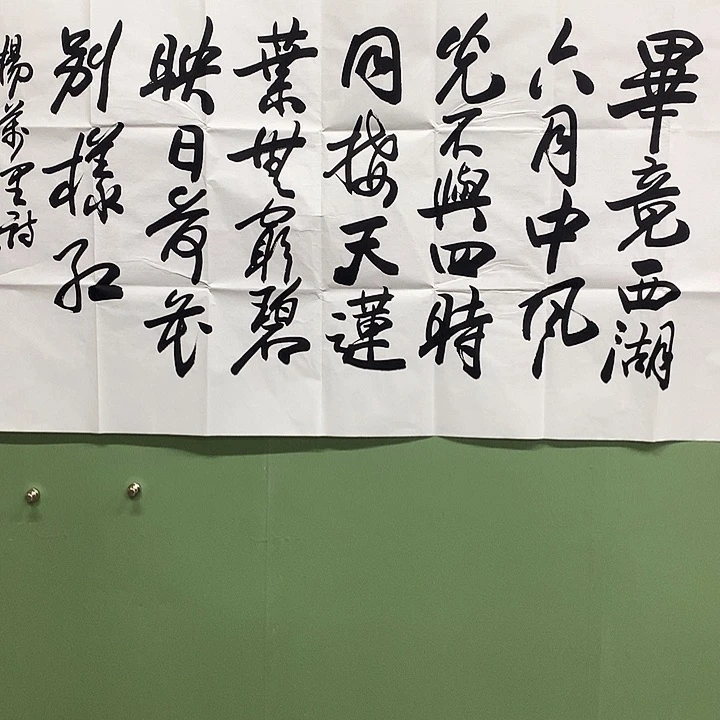 畢竟西湖
六月中風
光不與四時
同接天蓮
葉無窮碧
映日荷花
別樣紅
楊萬里詩